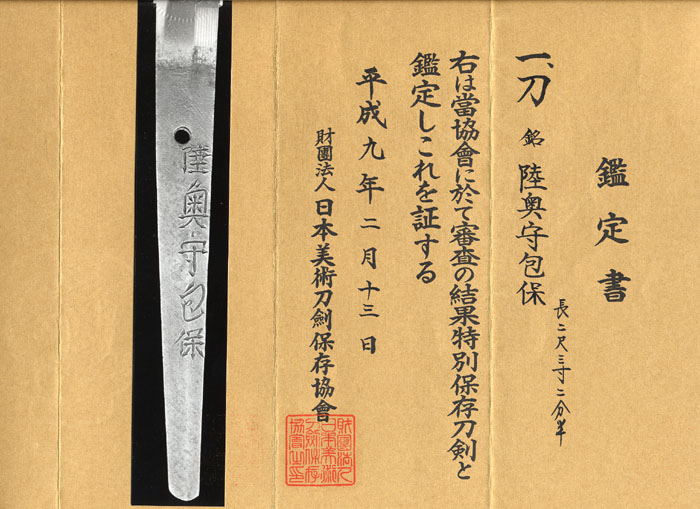 鑑定書
一、刀 銘 陸奥守包保
長二尺三寸二分半
右は當協會に於て審査の結果特別保存刀剣と
鑑定しこれを証する
平成九年二月十三日
財團法人 日本美術刀劍保存協會
陸奥守包保